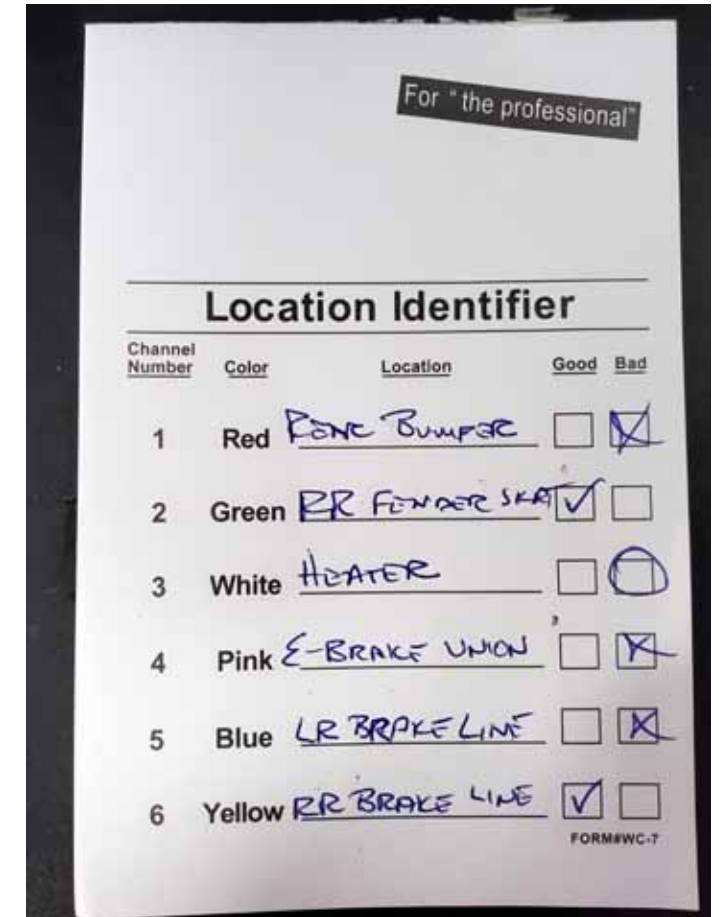 For " the professional"
Location Identifier
Channel Number Color Location Good Bad
1 Red Bumper
2 Green RR FENDER SKRT
3 White HEATER
4 Pink E-BRAKE UNION
5 Blue LR BRAKE LINE
6 Yellow RR BRAKE LINE
FORM#WC-7